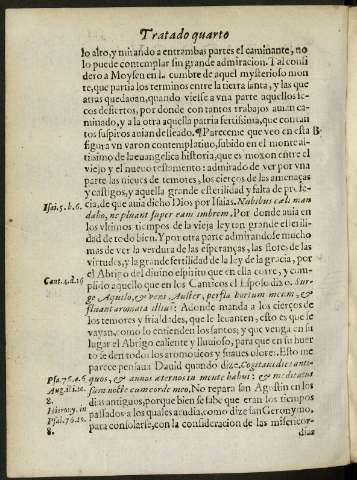 Tratado quarto
lo alto, y mirando a entrambas partes el caminante, no
lo puede contemplar sin grande admiracion. Tal consi
dero a Moysen en la cumbre de aquel mysterioso mon
te, que partia los terminos entre la tierra santa, y las que
atras quedauan, quando viesse a vna parte aquellos se-
cos desiertos, por donde con tantos trabajos auian ca-
minado, y a la otra aquella patria fertilissima, que con tan
tos suspiros auian desseado. ¶ Pareceme que veo en esta B
figura vn varon contemplatiuo, subido en el monte al-
tissimo de la euangelica historia, que es moxon entre el
viejo y el nueuo testamento: admirado de ver por vna
parte las nieues de temores, los cierços de las amenaças
y castigos, y aquella grande esterilidad y falta de
Isai.5.b.6. cia, de que auia dicho Dios por Isaias. Nubibus cæli man
dabo, ne pluant super eam imbrem. Por donde auia en
los vltimos tiempos de la vieja ley tan grande esterili-
dad de todo bien. Y por otra parte admirandose mucho
mas de ver la verdura de las esperanças, las flores de las
virtudes, y la grande fertilidad de la ley de la gracia, por
el Abrigo del diuino espiritu que en ella corre, y cum-
Cant.4.d.16 plido aquello que en los Canticos el Esposo dixo. Sur-
ge Aquilo, & veni Auster, perfla hortum meum, &
fluant aromata illius: Adonde manda a los cierços de
los temores y frialdades, que se leuanten, esto es que se
vayan, como lo entienden los santos: y que venga en su
lugar el Abrigo caliente y lluuioso, para que en su huer
to se den todos los aromaticos y suaues olores. Esto me
parece pensaua Dauid quando dize. Cogitaui dies anti-
Psa.76.a.6 quos, & annos æternos in mente habui: & meditatus
Aug. sum nocte cum corde meo. No repara san Agustin en los
8. dias antiguos, porque bien se sabe que eran los tiempos
Hierony. in passados a los quales acudia, como dize san Geronymo,
Psal.76. para consolarse, con la consideracion de las misericor-
8. dias